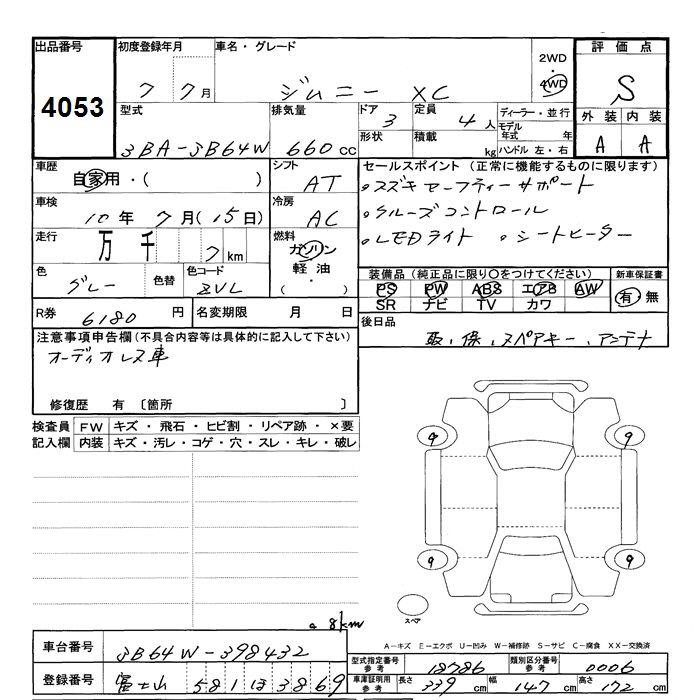 出品番号 初度登録年月 車名・グレード 評価点
4053 7 7月 ジムニー XC 2WD 4WD S
型式 排気量 ドア 定員 ディーラー・並行 外装 内装
3BA-3B64W 660cc 3 4人 モデル年式 年 A A
形状 積載 kg ハンドル 左・右
車歴 自家用・( ) シフト AT セールスポイント (正常に機能するものに限ります)
・スズキセーフティーサポート
車検 10年7月(15日) 冷房 AC ・クルーズコントロール
走行 万 千 7km 燃料 ガソリン 軽油 ・( ) ・LEDライト ・シートヒーター
色 グレー 色替 色コード ZVL 装備品 (純正品に限り○をつけてください) 新車保証書
PS PW ABS エアB AW 有・無
SR ナビ TV カワ
R券 6180円 名変期限 月 日 後日品
取、保、スペアキー、アンテナ
注意事項申告欄(不具合内容等は具体的に記入して下さい)
オーディオレス車
修復歴 有 〔箇所 〕
検査員 FW キズ・飛石・ヒビ割・リペア跡・×要
記入欄 内装 キズ・汚レ・コゲ・穴・スレ・キレ・破レ
9 9
9 9
スペア
8km
A-キズ E-エクボ U-凹み W-補修跡 S-サビ C-腐食 XX-交換済
車台番号 3B64W-398432 型式指定番号 参考 18786 類別区分番号 参考 0006
登録番号 富士山 581 ほ 3869 車庫証明用 参考 長さ 339cm 幅 147cm 高さ 172cm